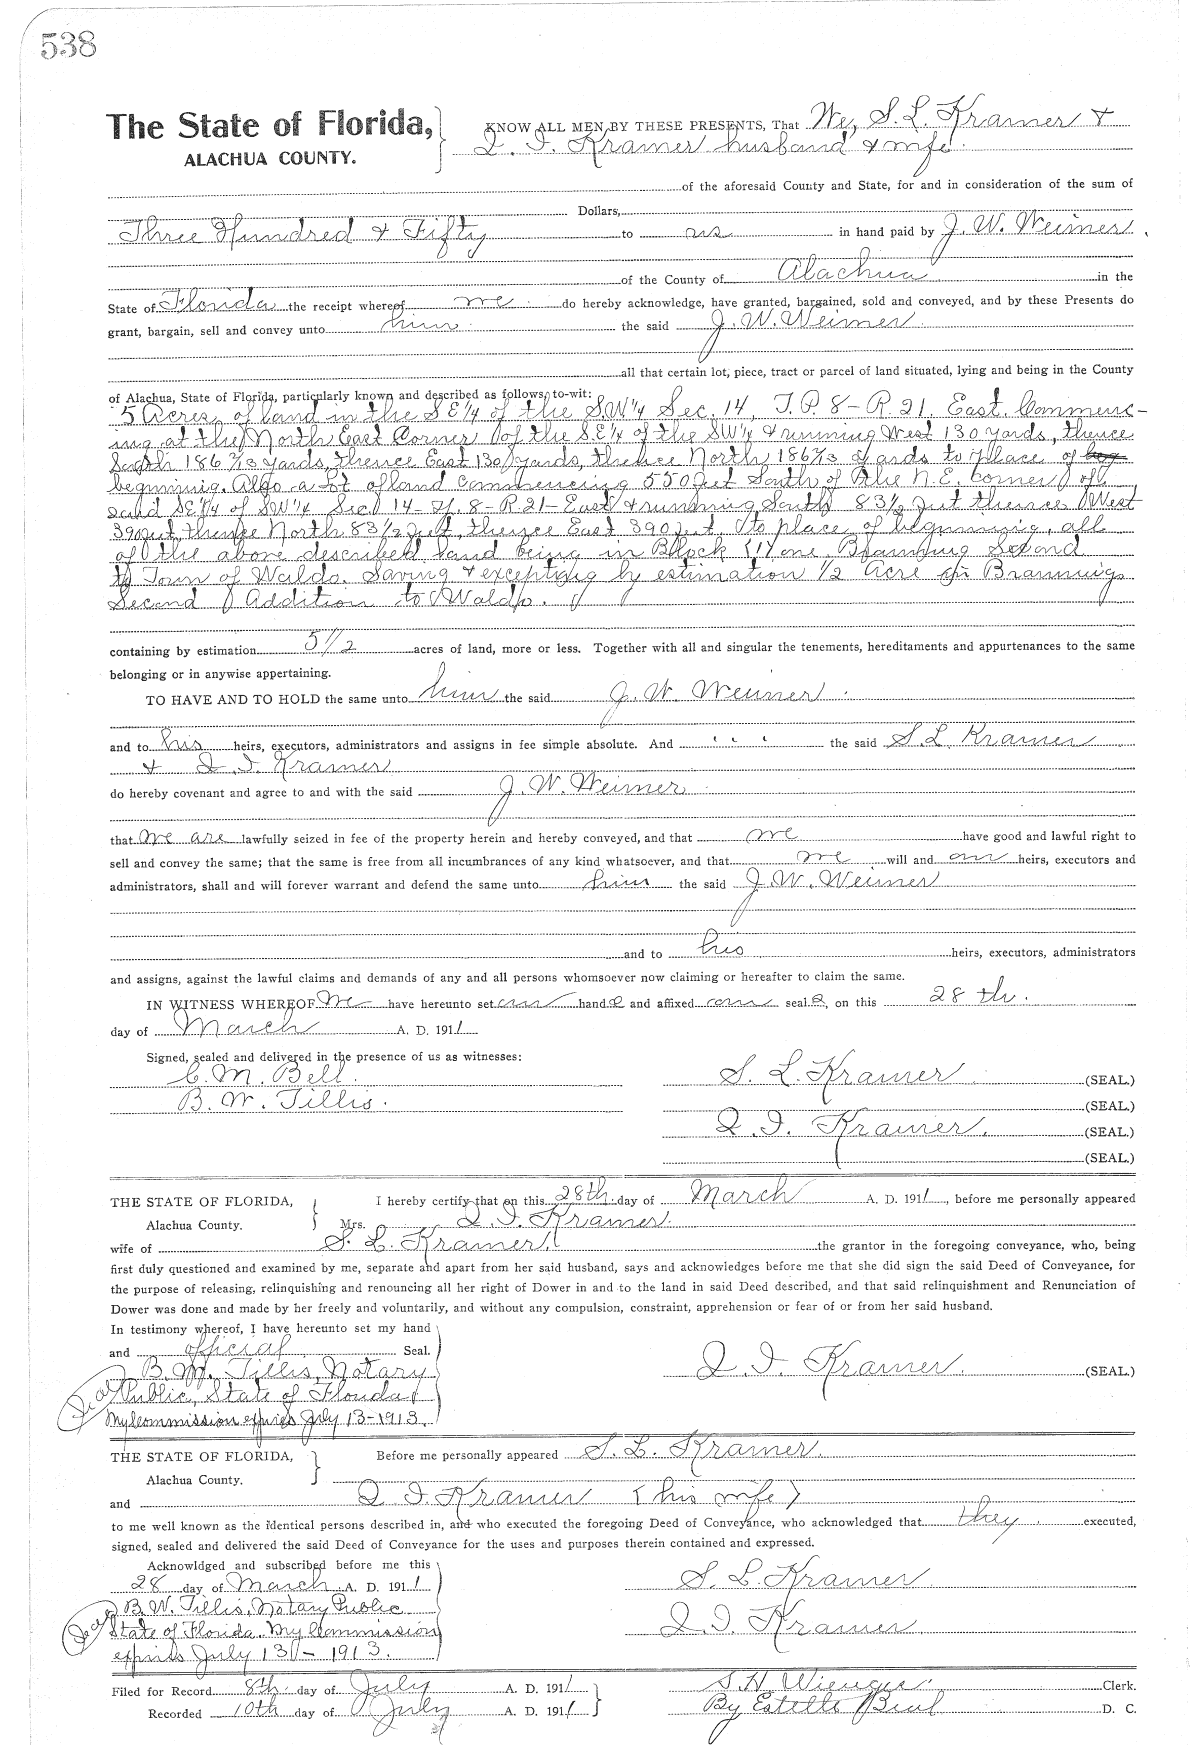 538
The State of Florida, KNOW ALL MEN BY THESE PRESENTS, That We, S. L. Kramer +
ALACHUA COUNTY. I. I. Kramer husband & wife.
of the aforesaid County and State, for and in consideration of the sum of
Dollars,
Three Hundred & Fifty to us in hand paid by J. W. Weimer,
of the County of Alachua in the
State of Florida the receipt whereof we do hereby acknowledge, have granted, bargained, sold and conveyed, and by these Presents do
grant, bargain, sell and convey unto him the said J. W. Weimer
all that certain lot, piece, tract or parcel of land situated, lying and being in the County
of Alachua, State of Florida, particularly known and described as follows, to-wit:
5 Acres of land in the S.E1/4 of the S.W1/4 Sec. 14, T.P. 8-R 21. East. Commenc-
ing at the North East Corner of the S.E1/4 of the SW1/4 & running West 130 yards, thence
South 186 2/13 yards, thence East 130 yards, thence North 186 2/13 yards to place of beg
beginning. Also a lot of land commencing 550 feet South of the N.E. corner of
said SE1/4 of SW1/4 Sec 14- 8-R21-East & running South 83 1/2 feet thence West
390 feet, thence North 83 1/2 feet, thence East 390 feet, to place of beginning, all
of the above described land being in Block (1) one Branning Second
Town of Waldo. Saving & excepting by estimation 1/2 Acre in Brannings
Second Addition to Waldo.
containing by estimation 5 1/2 acres of land, more or less. Together with all and singular the tenements, hereditaments and appurtenances to the same
belonging or in anywise appertaining.
TO HAVE AND TO HOLD the same unto him the said J. W. Weimer.
and to his heirs, executors, administrators and assigns in fee simple absolute. And " " " the said S. L. Kramer
& I. I. Kramer
do hereby covenant and agree to and with the said J. W. Weimer
that we are lawfully seized in fee of the property herein and hereby conveyed, and that we have good and lawful right to
sell and convey the same; that the same is free from all incumbrances of any kind whatsoever, and that we will and our heirs, executors and
administrators, shall and will forever warrant and defend the same unto him the said J. W. Weimer
and to his heirs, executors, administrators
and assigns, against the lawful claims and demands of any and all persons whomsoever now claiming or hereafter to claim the same.
IN WITNESS WHEREOF We have hereunto set our hand s and affixed our seal s, on this 28th.
day of March A. D. 1911
Signed, sealed and delivered in the presence of us as witnesses:
C. M. Bell. S. L. Kramer (SEAL.)
B. W. Tillis. (SEAL.)
I. I. Kramer. (SEAL.)
(SEAL.)
THE STATE OF FLORIDA, I hereby certify that on this 28th day of March A. D. 1911, before me personally appeared
Alachua County. Mrs. I. I. Kramer.
wife of S. L. Kramer, the grantor in the foregoing conveyance, who, being
first duly questioned and examined by me, separate and apart from her said husband, says and acknowledges before me that she did sign the said Deed of Conveyance, for
the purpose of releasing, relinquishing and renouncing all her right of Dower in and to the land in said Deed described, and that said relinquishment and Renunciation of
Dower was done and made by her freely and voluntarily, and without any compulsion, constraint, apprehension or fear of or from her said husband.
In testimony whereof, I have hereunto set my hand
and official Seal.
B. W. Tillis, Notary I. I. Kramer. (SEAL)
Seal Public, State of Florida
My Commission expires July 13-1913.
THE STATE OF FLORIDA, Before me personally appeared S. L. Kramer.
Alachua County.
and I I. Kramer (his wife)
to me well known as the identical persons described in, and who executed the foregoing Deed of Conveyance, who acknowledged that they executed,
signed, sealed and delivered the said Deed of Conveyance for the uses and purposes therein contained and expressed.
Acknowldged and subscribed before me this
28 day of March A. D. 1911 S. L. Kramer
Seal B. W. Tillis, Notary Public
State of Florida. My Commission I. I. Kramer.
expires July 13 - 1913.
Filed for Record 8th. day of July A. D. 1911 S. H. Wienges Clerk.
Recorded 10th day of July A. D. 1911 By Estelle D. C.